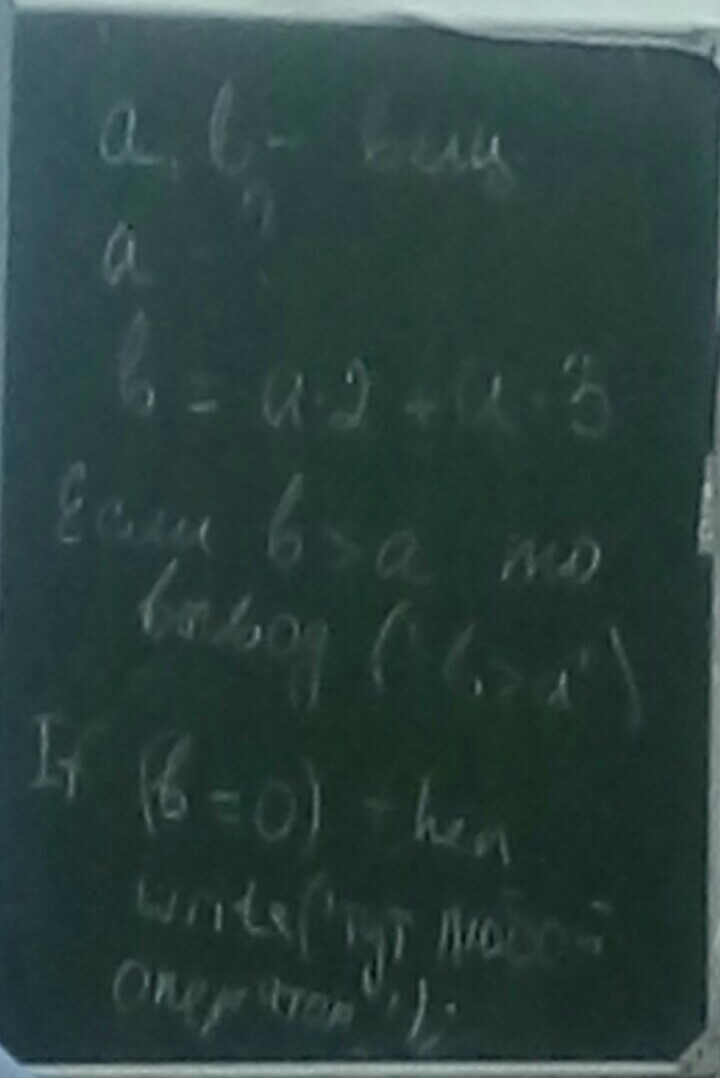 a, b - вещ
a - ?
b = a·2 + a·3
Если b > a то
вывод ('b > a')
If (b = 0) then
write('тут любой
оператор');